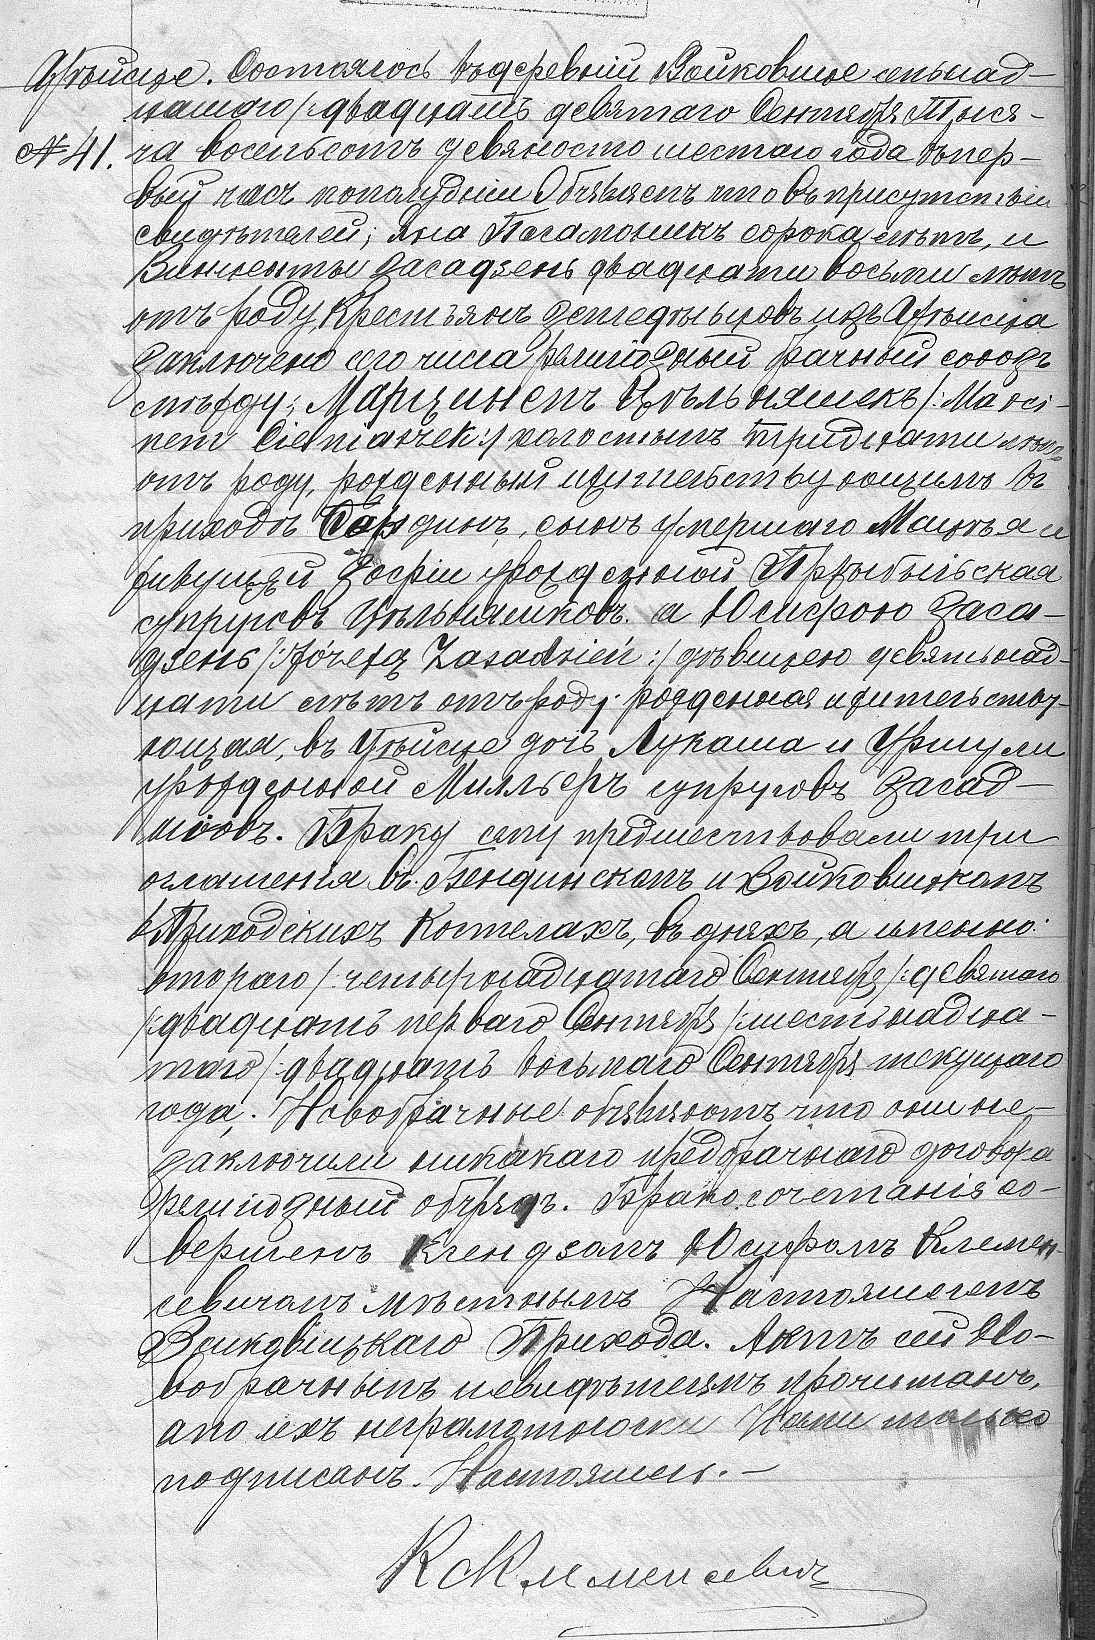 Уѣйсце. Состоялось въ деревнѣи Войковице семьнад-
№ 41.
цатаго /: двадцать девятаго Сентября Тыся-
ча восемьсотъ девяносто шестаго года въ пер-
вый часъ пополуднѣи Объявляемъ что въ присутствіи
свидѣтелей; Яна сорока лѣтъ, и
Винценты Засадзень двадцати восьми лѣтъ
отъ роду, Крестьянъ изъ Уѣисца
заключено сего числа религіозный брачный союзъ
между; Марцинемъ Цѣльняшекъ /: Marci-
nem Cielniaszek :/ холостымъ тридцати лѣтъ
отъ роду, рожденный и жительствующимъ въ
приходѣ Бендинъ, сынъ умершаго Мацѣя и
живущей Зофіи урожденной Пржыбыльская
супруговъ Цѣльняшковъ. а Юзефою Заса-
дзень /: Józefą Zasadzień :/ дѣвицею девятьнад-
цати лѣтъ отъ роду; рожденная и жительству-
ющая, въ Уѣйсце дочь Лукаша и Уршули
урожденной Милльеръ супруговъ Засад-
нiовъ. Браку сему предшествовали три
оглашенія въ Бендинскомъ и Войковицкомъ
Приходскихъ Костелахъ, въ дняхъ, а именно:
втораго /: четырнадцатаго Сентября /: девятаго
/: двадцать перваго Сентября /: шестьнадца-
таго /: двадцать восьмаго Сентября текущаго
года. Новобрачные объявляютъ что они не-
заключили никакаго предбрачнаго договора
религiозный обрядъ. Бракосочетанія со-
вершенъ Ксендзомъ Юзефомъ Клемен-
севичомъ мѣстнымъ Настоятелемъ
Войковицкаго Прихода. Актъ сей Но-
вобрачнымъ и свидѣтелямъ прочитанъ,
а по ихъ неграмотности Нами только
подписанъ. Настоятель. —
К с Клеменсевичъ